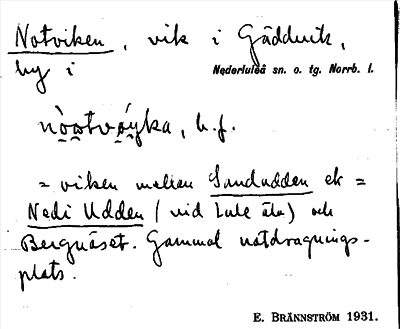 Notviken, vik i Gäddvik,
by i Nederluleå sn. o. tg. Norrb. l.
nò̱o̱tvó̱yka, b.f.
= viken mellan Sandudden ok =
Nedi Udden (vid Lule älv) och
Bergnäset. Gammal notdragnings-
plats.
E. BRÄNNSTRÖM 1931.